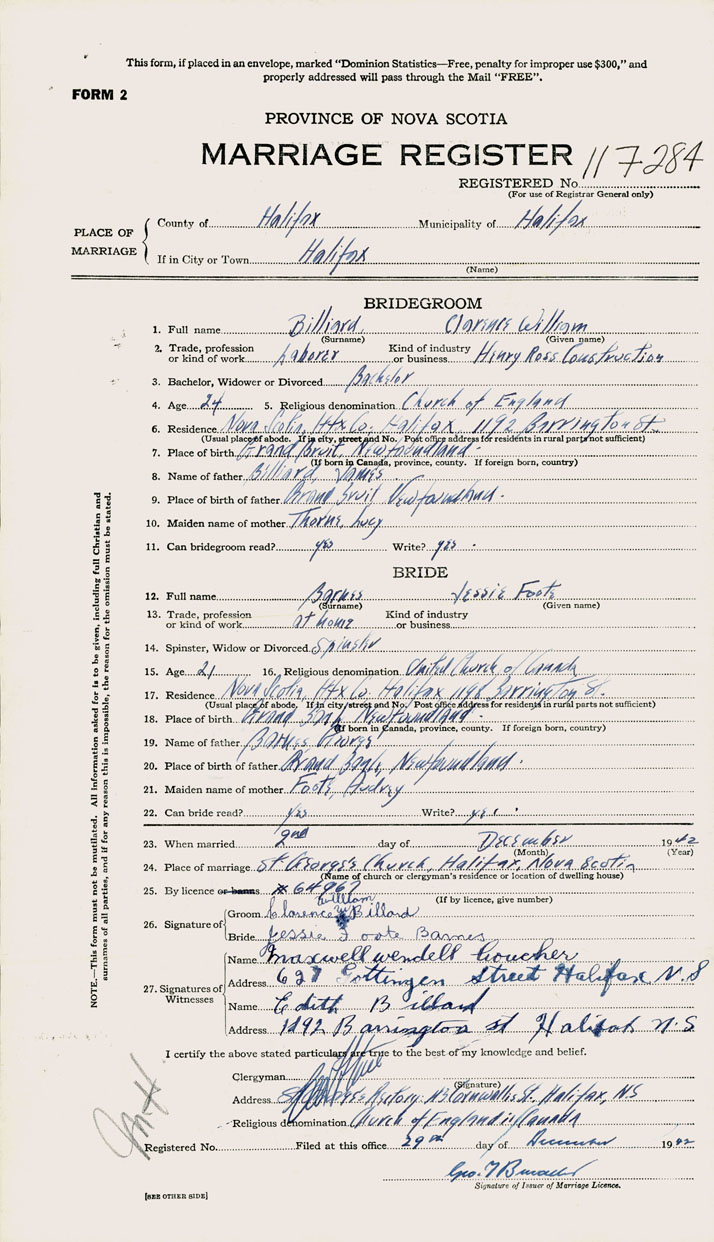 This form, if placed in an envelope, marked "Dominion Statistics—Free, penalty for improper use $300," and
properly addressed will pass through the Mail "FREE".
FORM 2
PROVINCE OF NOVA SCOTIA
MARRIAGE REGISTER
REGISTERED No. 117284
(For use of Registrar General only)
PLACE OF MARRIAGE
County of Halifax Municipality of Halifax
If in City or Town Halifax
(Name)
BRIDEGROOM
1. Full name Billiard, Clarence William
(Surname) (Given name)
2. Trade, profession or kind of work Laborer Kind of industry or business Henry Ross Construction
3. Bachelor, Widower or Divorced Bachelor
4. Age 24 5. Religious denomination Church of England
6. Residence Nova Scotia, Hfx Co. Halifax 1192 Barrington St
(Usual place of abode. If in city, street and No. Post office address for residents in rural parts not sufficient)
7. Place of birth Grand Bruit, Newfoundland.
(If born in Canada, province, county. If foreign born, country)
8. Name of father Billiard James
9. Place of birth of father Grand Bruit Newfoundland.
10. Maiden name of mother Thorne, Lucy
11. Can bridegroom read? yes Write? yes.
BRIDE
12. Full name Barnes Jessie Foote
(Surname) (Given name)
13. Trade, profession or kind of work at home Kind of industry or business
14. Spinster, Widow or Divorced Spinster
15. Age 21 16. Religious denomination United Church of Canada
17. Residence Nova Scotia, Hfx Co. Halifax Barrington St.
(Usual place of abode. If in city, street and No. Post office address for residents in rural parts not sufficient)
18. Place of birth Grand Newfoundland.
(If born in Canada, province, county. If foreign born, country)
19. Name of father Barnes George
20. Place of birth of father Grand Newfoundland.
21. Maiden name of mother Foote, Audrey
22. Can bride read? yes Write? yes.
23. When married 2nd day of December 1942
(Month) (Year)
24. Place of marriage St George's Church, Halifax, Nova Scotia
(Name of church or clergyman's residence or location of dwelling house)
25. By licence or banns # 64967 (If by licence, give number)
26. Signature of
Groom Clarence William Billard
Bride Jessie Foote Barnes
27. Signatures of Witnesses
Name Maxwell Wendell Goucher
Address 627 Gottingen Street Halifax N.S
Name Edith Billard
Address 1192 Barrington st Halifax N.S
I certify the above stated particulars are true to the best of my knowledge and belief.
Clergyman
(Signature)
Address St George's Rectory, Cornwallis St. Halifax, NS
Religious denomination Church of England in Canada
Registered No. Filed at this office 29 day of December 1942
Geo.
Signature of Issuer of Marriage Licence.
[SEE OTHER SIDE]
NOTE.—This form must not be mutilated. All information asked for is to be given, including full Christian and
surnames of all parties, and if for any reason this is impossible, the reason for the omission must be stated.